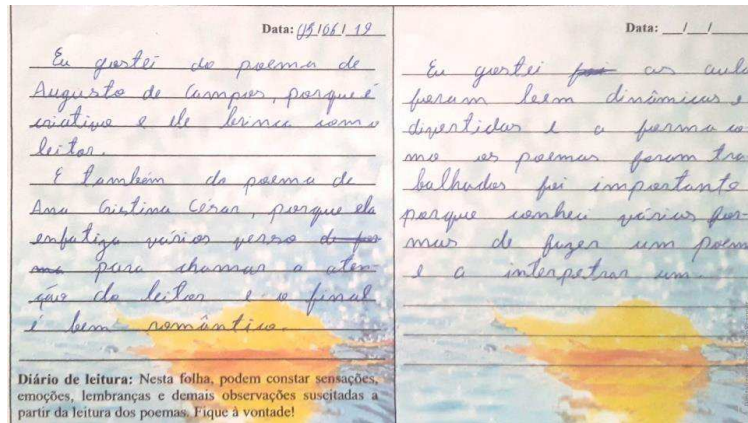 Data: 05/06/19
Eu gostei do poema de
Augusto de Campos, porque é
criativo e ele brinca com o
leitor.
E também do poema de
Ana Cristina César, porque ela
enfatiza vários verso de for
ma para chamar a aten-
ção do leitor e o final
é bem romântico.
Diário de leitura: Nesta folha, podem constar sensações,
emoções, lembranças e demais observações suscitadas a
partir da leitura dos poemas. Fique à vontade!
Data: __/__/__
Eu gostei foi as aula
foram bem dinâmicas e
divertidas e a forma co
mo os poemas foram tra
balhados foi importante
porque conheci várias for
mas de fazer um poem
e a interpetrar um.